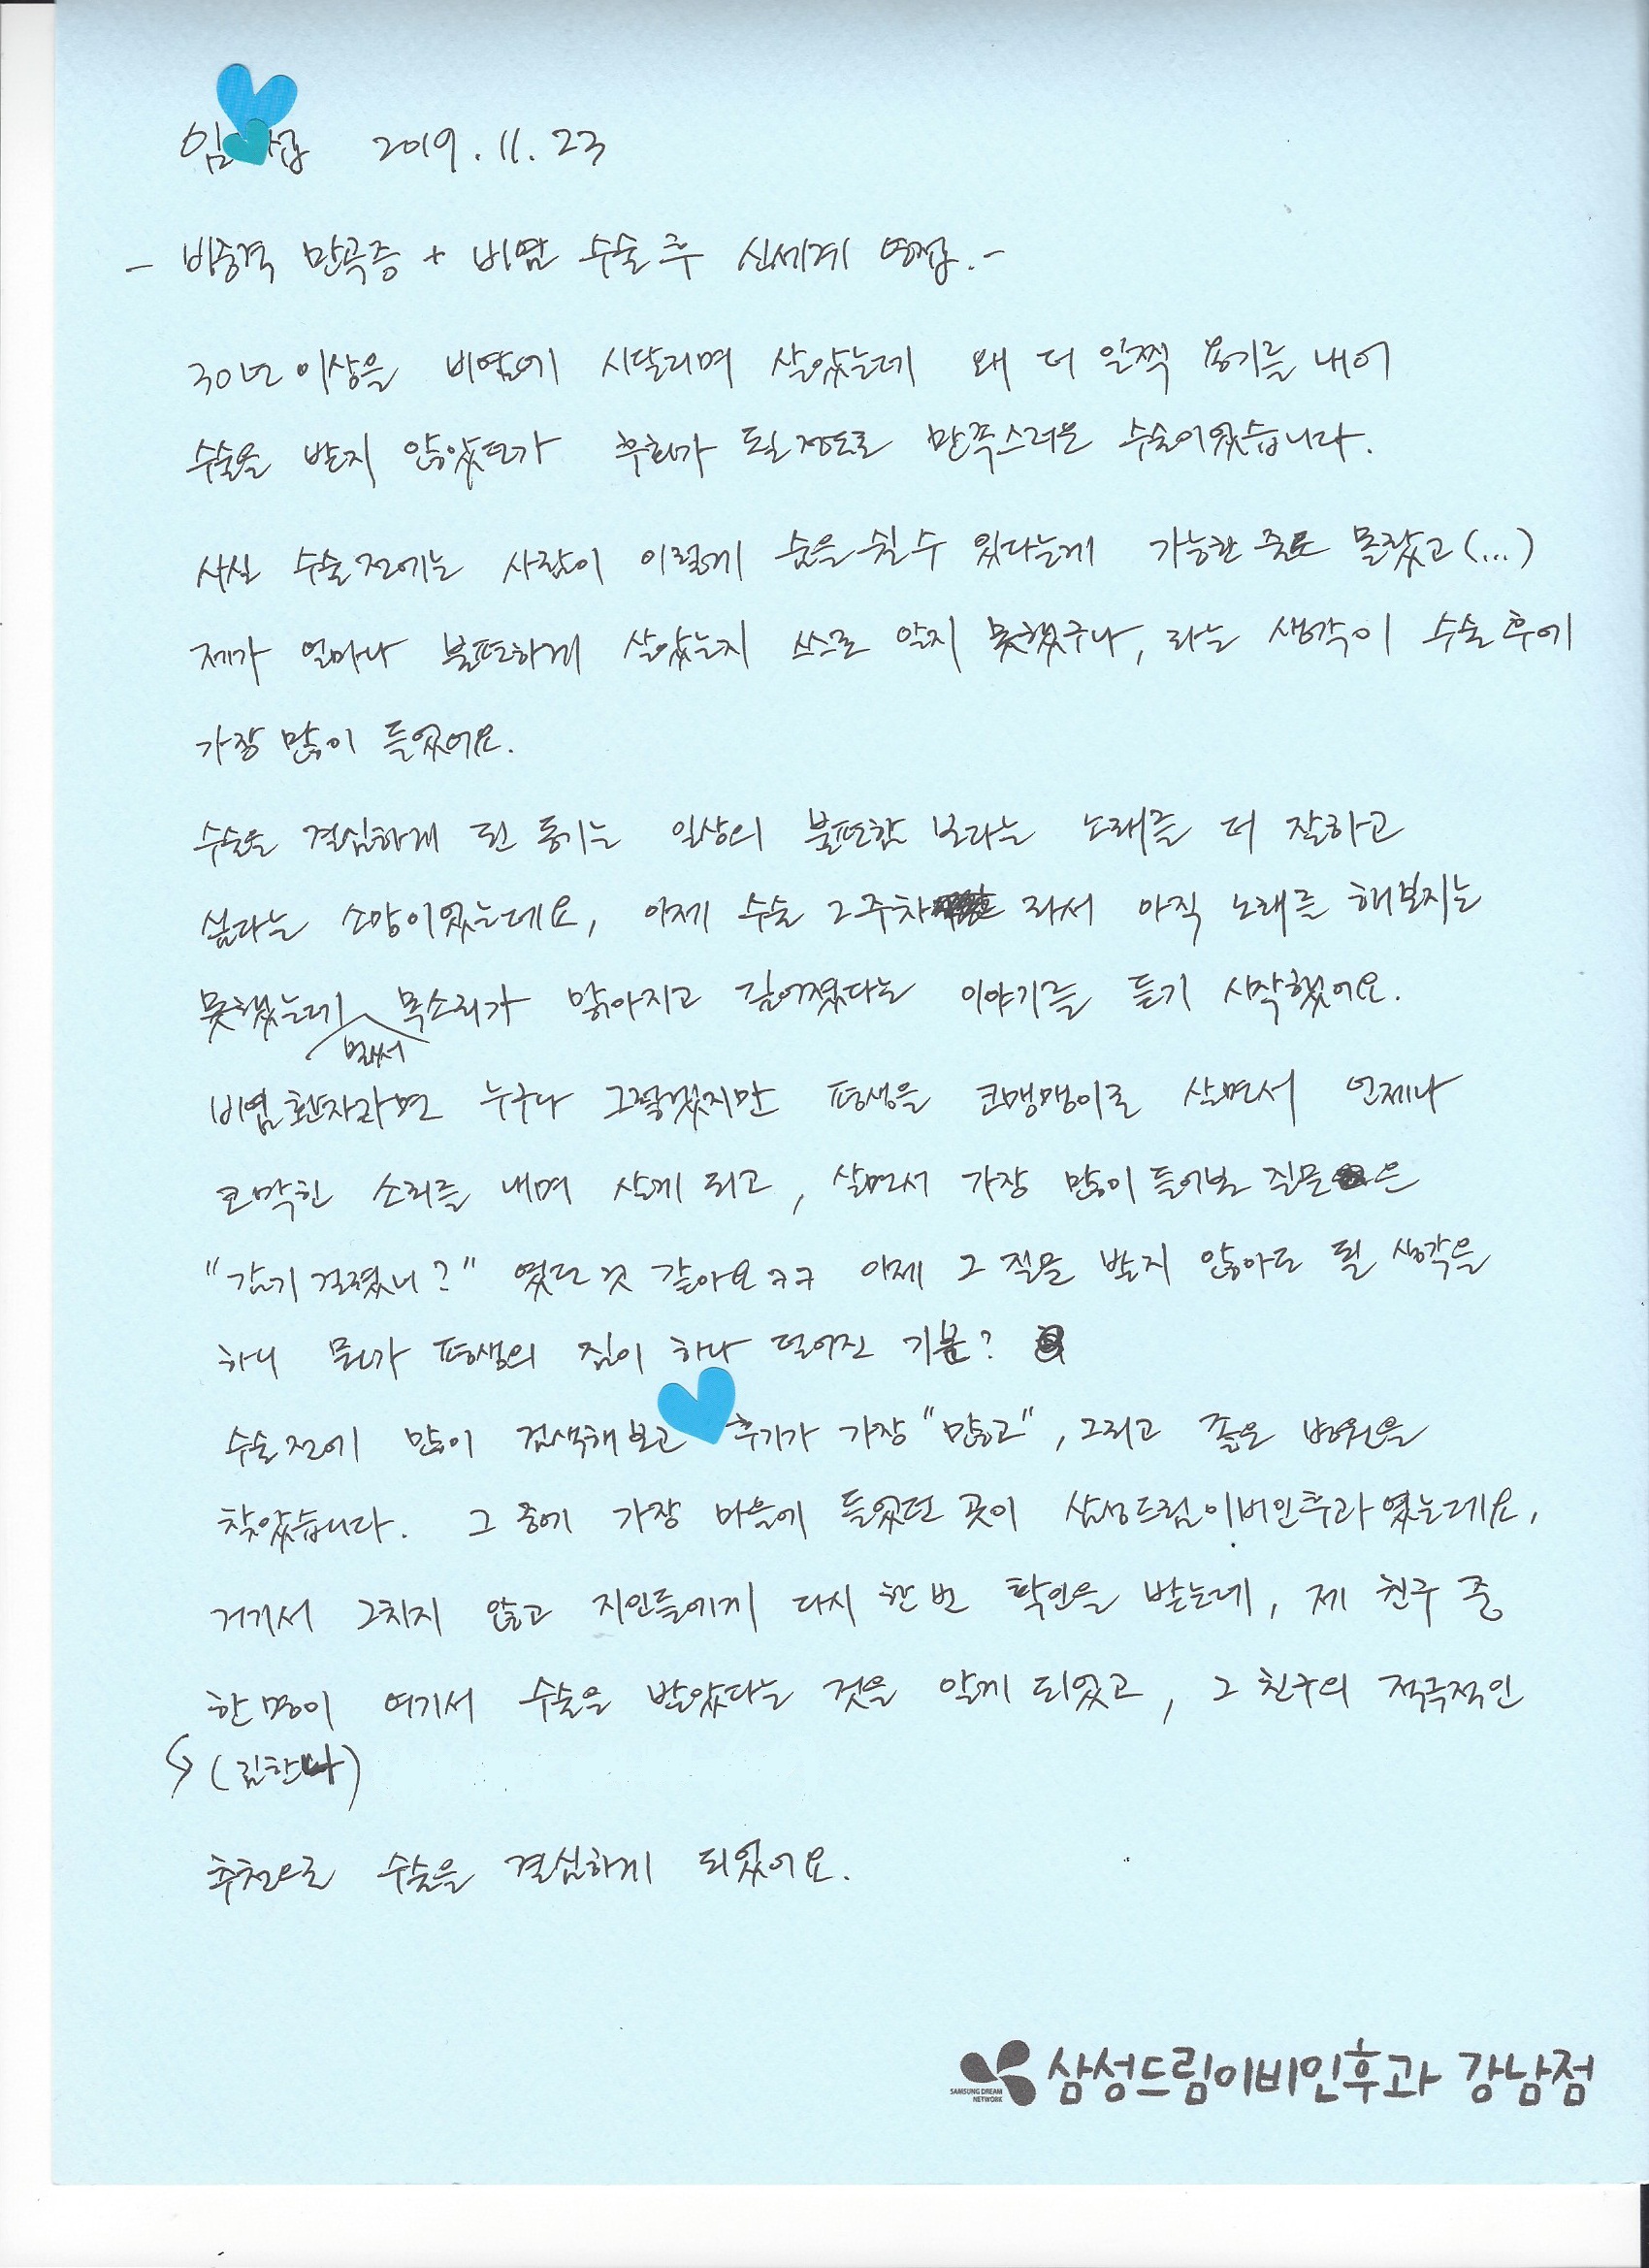 임 섭 2019.11.23
- 비중격 만곡증 + 비염 수술 후 신세계 영접.-
30년 이상을 비염에 시달리며 살았는데 왜 더 일찍 용기를 내어
수술을 받지 않았던가 후회가 될 정도로 만족스러운 수술이었습니다.
사실 수술 전에는 사람이 이렇게 숨을 쉴 수 있다는게 가능한 줄도 몰랐고(...)
제가 얼마나 불편하게 살았는지 스스로 알지 못했구나, 라는 생각이 수술 후에
가장 많이 들었어요.
수술을 결심하게 된 동기는 일상의 불편함 보다는 노래를 더 잘하고
싶다는 소망이었는데요, 이제 수술 2주차 라서 아직 노래를 해보지는
못했는데 벌써 목소리가 맑아지고 깊어졌다는 이야기를 듣기 시작했어요.
비염 환자라면 누구나 그렇겠지만 평생을 코맹맹이로 살면서 언제나
코막힌 소리를 내며 살게 되고, 살면서 가장 많이 들어본 질문은
"감기 걸렸니?" 였던 것 같아요ㅋㅋ 이제 그 질문 받지 않아도 될 생각을
하니 뭔가 평생의 짐이 하나 덜어진 기분?
수술 전에 많이 검색해보고 후기가 가장 "많고", 그리고 좋은 병원을
찾았습니다. 그 중에 가장 마음에 들었던 곳이 삼성드림이비인후과였는데요,
거기서 그치지 않고 지인들에게 다시 한 번 확인을 받는데, 제 친구 중
한 명이 여기서 수술을 받았다는 것을 알게 되었고, 그 친구의 적극적인
(김한나)
추천으로 수술을 결심하게 되었어요.
SAMSUNG DREAM
NETWORK
삼성드림이비인후과 강남점